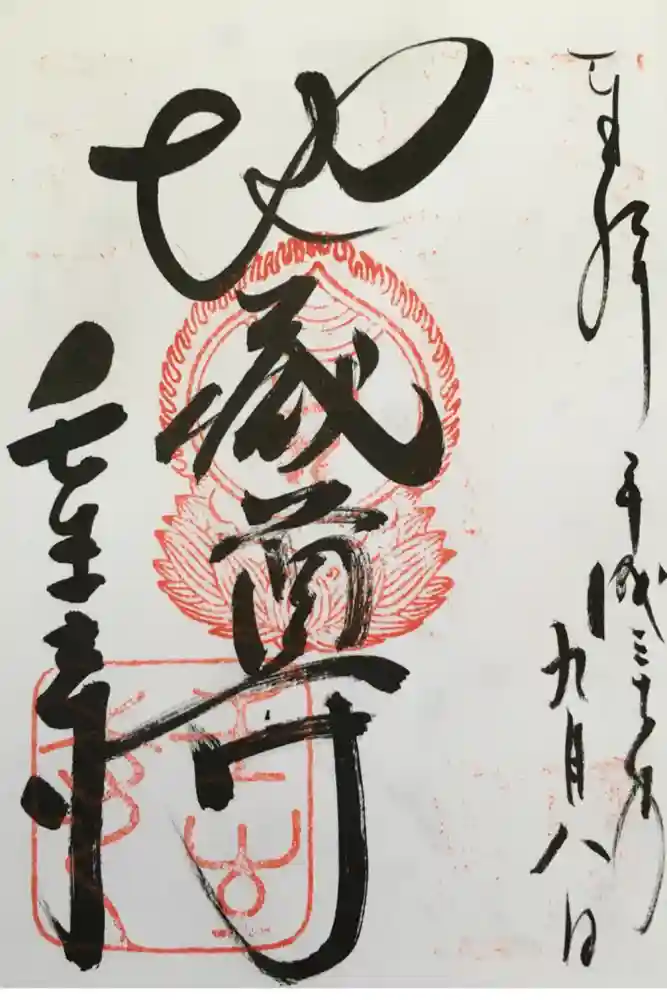 奉拝 平成三十年
九月八日
地蔵尊
壬生寺